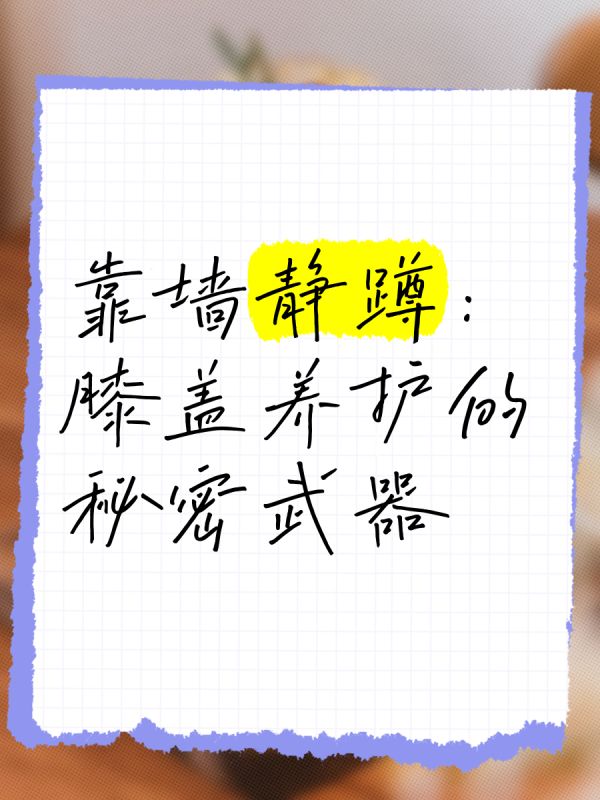 靠墙静蹲：
膝盖养护的
秘密武器